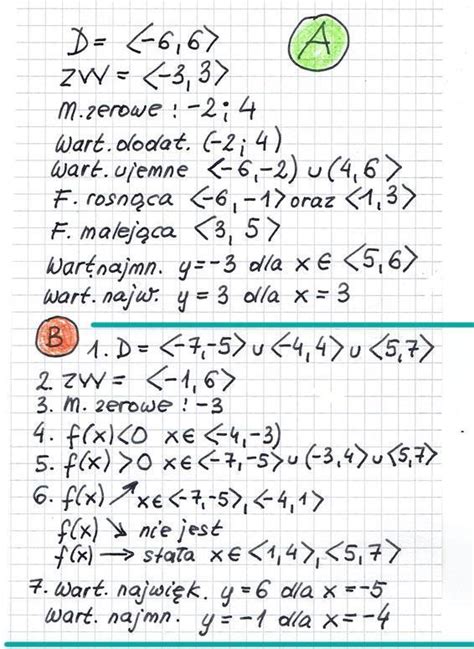 D = <-6,6> A
ZW = <-3,3>
M.zerowe : -2; 4
Wart. dodat. (-2; 4)
Wart. ujemne <-6,-2) ∪ (4,6>
F. rosnąca <-6,-1> oraz <1,3>
F. malejąca <3, 5>
Wart. najmn. y=-3 dla x∈ <5,6>
wart. najw. y = 3 dla x = 3
B 1. D = <-7,-5> ∪ <-4,4> ∪ <5,7>
2. ZW = <-1,6>
3. M. zerowe : -3
4. f(x)<0 x∈ <-4,-3)
5. f(x) >0 x∈ <-7,-5> ∪ (-3,4> ∪ <5,7>
6. f(x) ↗ x∈ <-7,-5>, <-4,1>
f(x) ↘ nie jest
f(x) → stała x∈ <1,4>, <5,7>
7. Wart. najwięk. y = 6 dla x = -5
Wart. najmn. y = -1 dla x = -4